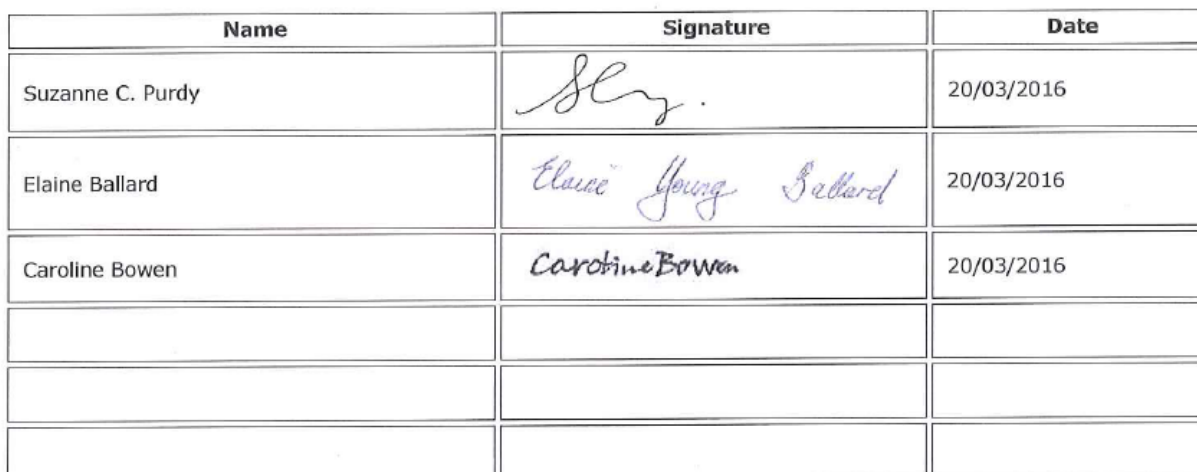 Name Signature Date
Suzanne C. Purdy 20/03/2016
Elaine Ballard Elaine Young Ballard 20/03/2016
Caroline Bowen Caroline Bowen 20/03/2016